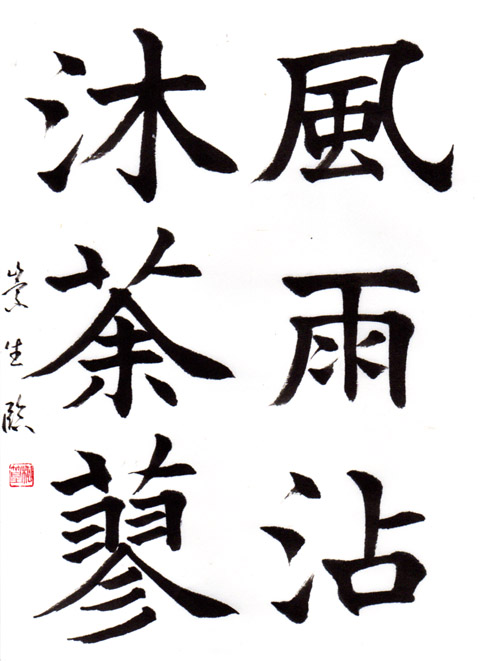 風雨沾
沐荼蓼
崇生臨